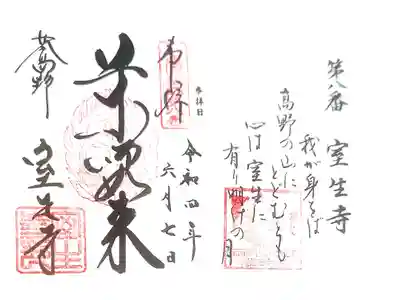 第八番 室生寺
我が身をば
高野の山に
とどむとも
心は室生に
有り明けの月
奉拝
参拝日
令和四年
六月七日
女人高野
室生寺